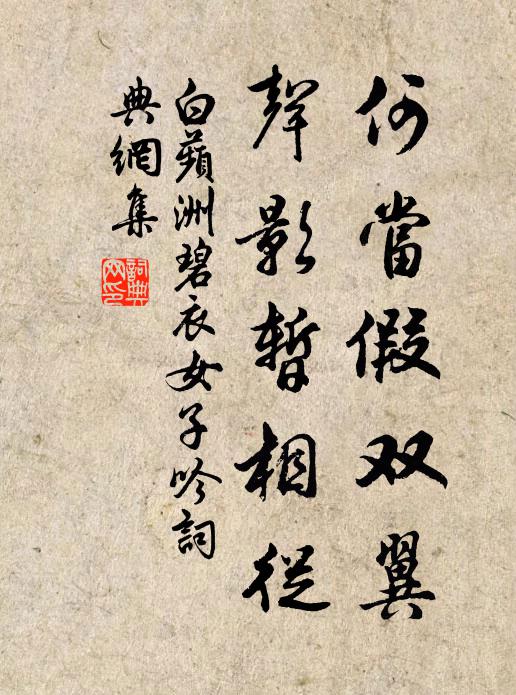 何當假双翼
聲影暫相從
白蘋洲碧衣女子吟詞
典網集
詞典
网印